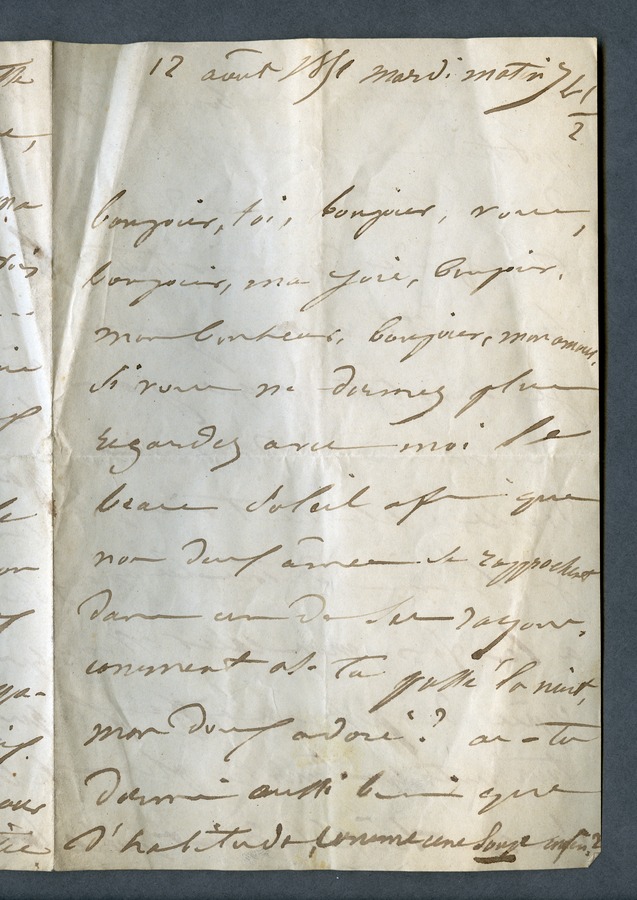 12 août 1851 mardi matin 7 h 1/2
bonjour, toi, bonjour, vous,
bonjour, ma joie, bonjour,
mon bonheur, bonjour, mon amour.
Si vous ne dormez plus
regardez avec moi le
beau soleil afin que
nos deux âmes se rapprochent
dans un de ses rayons.
comment as-tu passé la nuit,
mon doux adoré? as-tu
dormi aussi bien que
d'habitude comme une enfin?